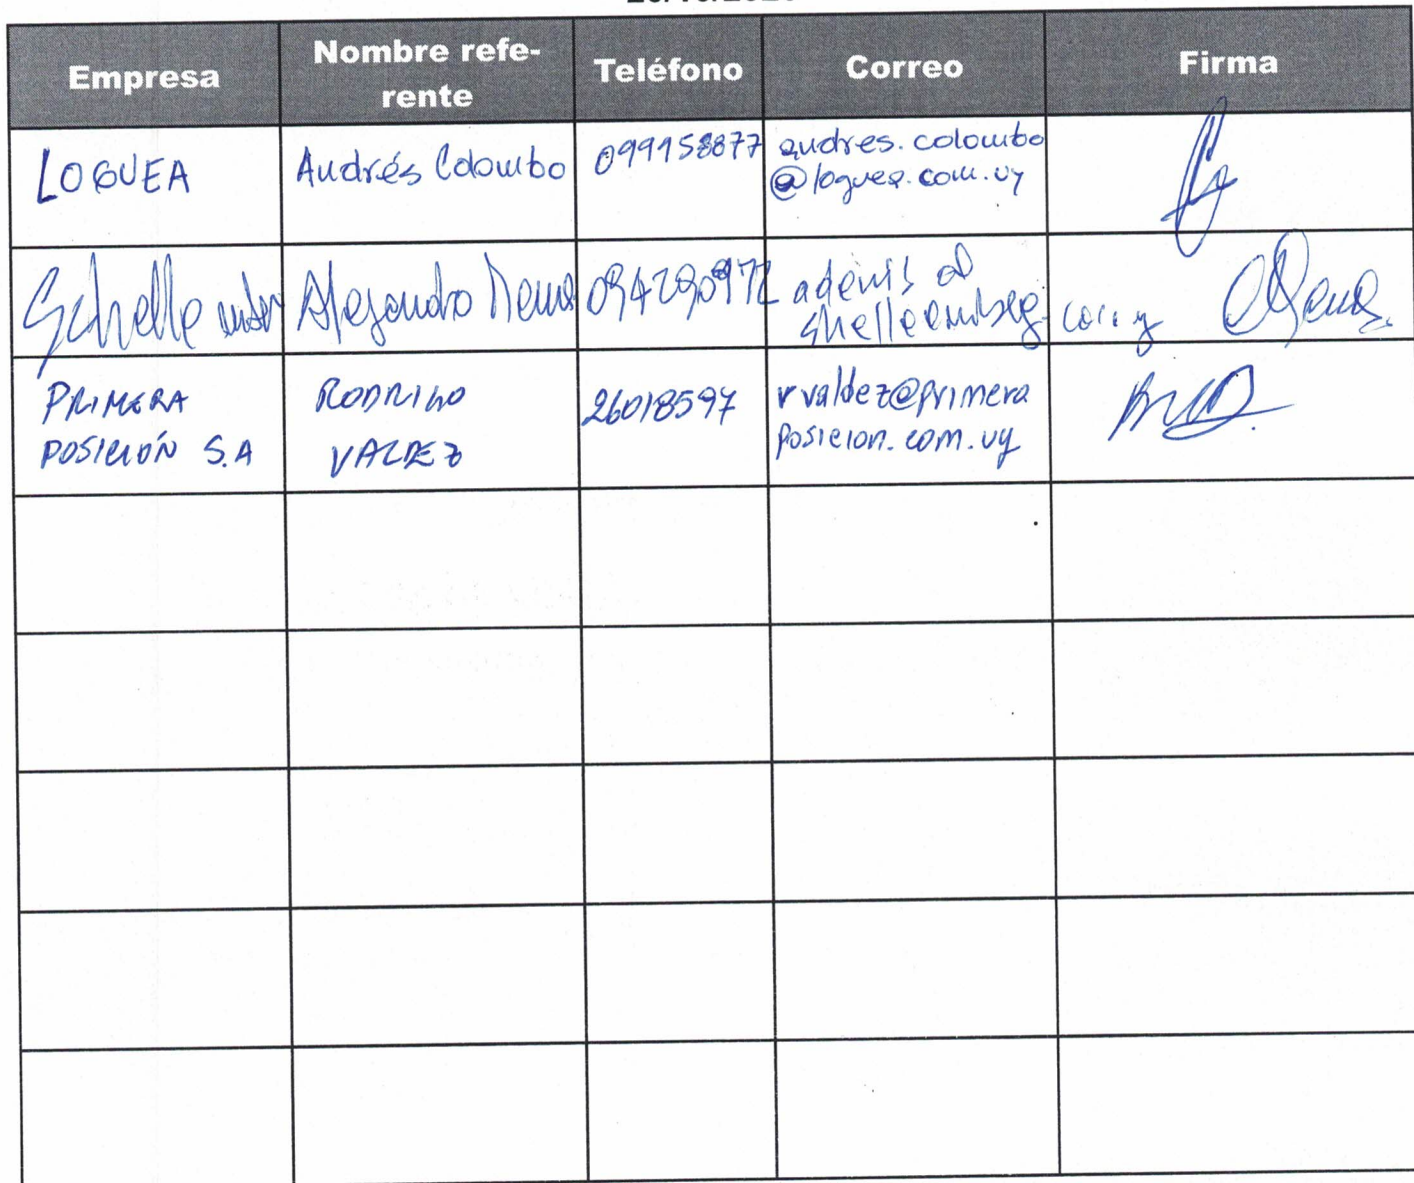 Empresa
Nombre refe-
rente
Teléfono
Correo
Firma
LOGUEA
Andrés Colombo
099158877
andres.colombo
@loguea.com.uy
Schelle
Alejandro
PRIMERA
POSICIÓN S.A
RODRIGO
VALDEZ
26018597
rvaldez@primera
posicion.com.uy